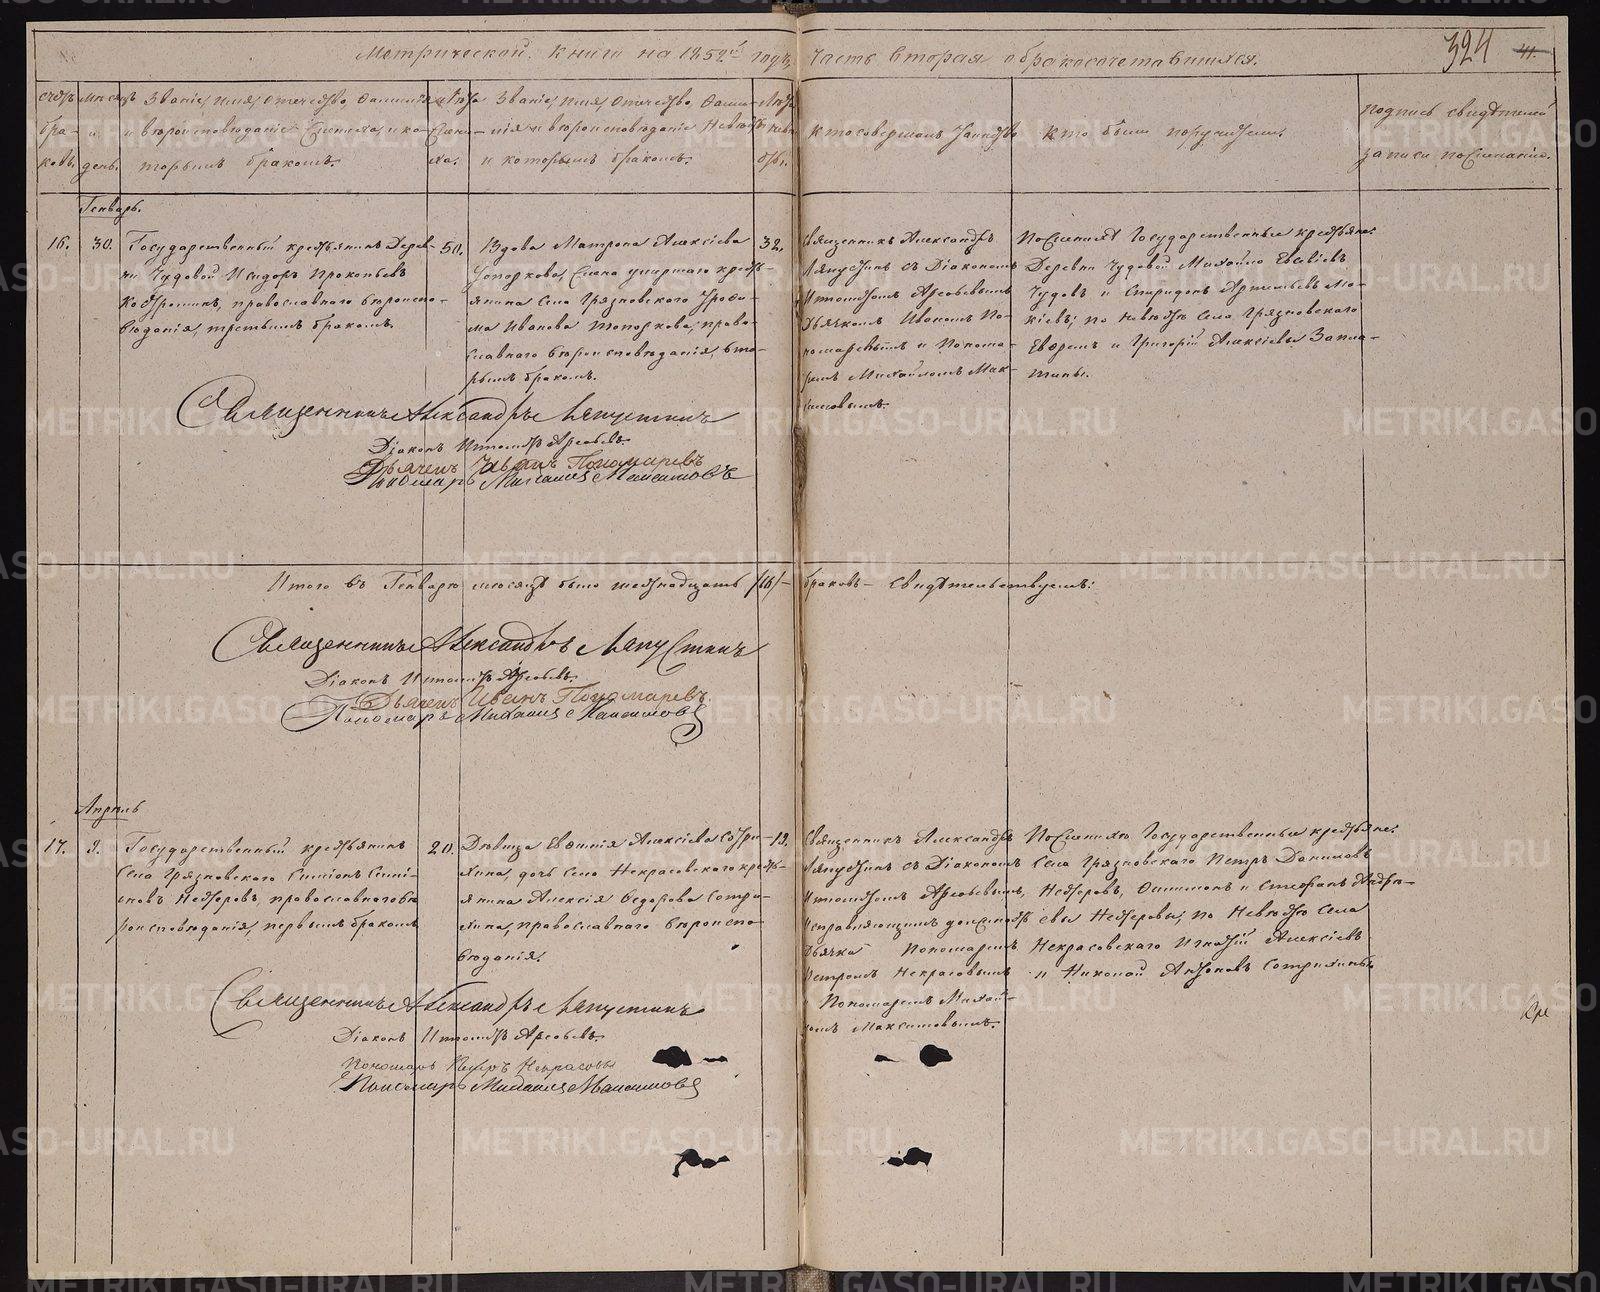 Метрической книги на 1852й годъ, Часть вторая о бракосочетавшихся.
324
41.
счетъ бра- ковъ.
мѣсяцъ и день.
Званіе, имя, отечество, фамилія
и вѣроисповѣданіе Жениха, и ко-
торымъ бракомъ.
Лѣта Жени- ха.
Званіе, имя, отечество, Фами-
лія и вѣроисповѣданіе Невѣсты
и которымъ бракомъ.
Лѣта невѣ- сты.
кто совершалъ Таинство
кто были поручители.
подпись свидѣтелей
записи по желанію.
Генварь.
16.
30.
Государственный крестьянинъ Дерев-
ни Чудовой Исидоръ Прокопьевъ
Костромин, православнаго вѣроиспо-
вѣданія, третьимъ бракомъ.
50.
Вдова Матрона Алексіева
Топоркова, Жена умершаго кресть-
янина Села Грязновскаго Трофи-
ма Иванова Топоркова, право-
славнаго вѣроисповѣданія, вто-
рымъ бракомъ.
32.
Священникъ Александръ
Ляпустинъ съ Діакономъ
Дьячкомъ Иваномъ По-
номаревымъ и Понома-
ремъ Михайломъ Мак-
симовымъ.
По Женихѣ Государственные крестьяне:
Деревни Чудовой Михайло Евсѣевъ
Чудовъ и Спиридонъ Артемьевъ Мо-
кѣевъ; по невѣстѣ Села Грязновскаго
Ефремъ и Григорій Алексіевы Запла-
тины.
Священникъ Александръ Ляпустинъ
Діаконъ
Дьячекъ Иванъ Пономаревъ
Пономарь Михаилъ Максимовъ
Итого въ Генварѣ мѣсяцѣ было шестнадцать /16/ браковъ — Свидѣтельствуемъ:
Священникъ Александръ Ляпустинъ
Діаконъ
Дьячекъ Иванъ Пономаревъ.
Пономарь Михаилъ Максимовъ
Апрѣль
17.
Государственный крестьянинъ
Села Грязновскаго Симеонъ
православнаго вѣ-
роисповѣданія, первымъ бракомъ
20.
Дѣвица Евфимія Алексіева Сотри-
хина, дочь Села Некрасовскаго кресть-
янина Алексія Федорова Сотри-
хина, православнаго вѣроиспо-
вѣданія.
19.
Священникъ Александръ
Ляпустинъ съ Діакономъ
Исправляющимъ должность
Дьячка Пономаремъ
Петромъ Некрасовымъ
Пономаремъ Михай-
ломъ Максимовымъ.
По Женихѣ Государственные крестьяне:
Села Грязновскаго Петръ Даниловъ
по Невѣстѣ Села
Некрасовскаго Игнатій Алексіевъ
и Николай Антоновъ Сотрихины.
Священникъ Александръ Ляпустинъ
Діаконъ
Пономарь Петръ Некрасовъ
Пономарь Михаилъ Максимовъ
METRIKI.GASO-URAL.RU